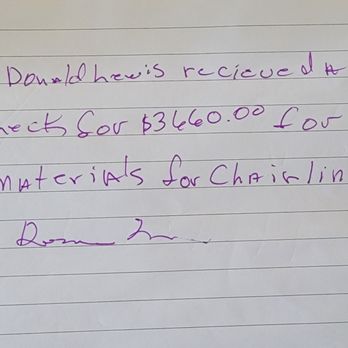 Donald Lewis recieved A
heck for $3660.00 for
mAteriAls for ChAirlin